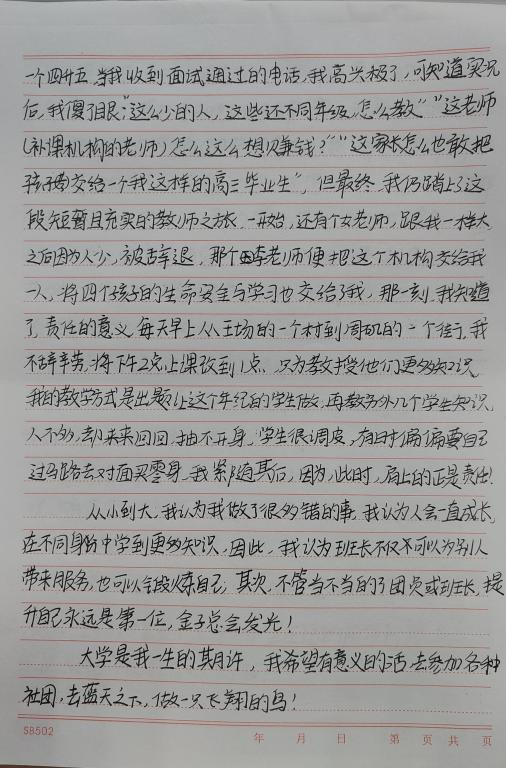 一个四升五，当我收到面试通过的电话，我高兴极了，可知道实况
后，我傻了眼，“这么少的人，这些还不同年级，怎么教”“这老师
（补课机构的老师）怎么这么想赚钱？”“这家长怎么也敢把
孩子交给一个我这样的高三毕业生”，但最终，我仍踏上了这
段短暂且充实的教师之旅，一开始，还有个女老师，跟我一样大，
之后因为人少，被辞退，那个李老师便把这个机构交给我
一人，将四个孩子的生命安全与学习也交给了我，那一刻，我知道
了，责任的意义，每天早上从王场的一个村到周矶的一个街，我
不辞辛劳，将下午2点上课改到1点，只为教授他们更多知识，
我的教学方式是出题让这个年纪的学生做，再教另外几个学生知识，
人不多，却来来回回，抽不开身，学生很调皮，有时偏偏要自己
过马路去对面买零身，我紧追其后，因为，此时，肩上的正是责任！
从小到大，我认为我做了很多错的事，我认为人会一直成长，
在不同身份中学到更多知识，因此，我认为班长不仅可以为别人
带来服务，也可以锻炼自己，其次，不管当不当的了团员或班长，提
升自己永远是第一位，金子总会发光！
大学是我一生的期许，我希望有意义的活，去参加各种
社团，去蓝天之下，做一只飞翔的鸟！
SB502 年 月 日 第 页 共 页